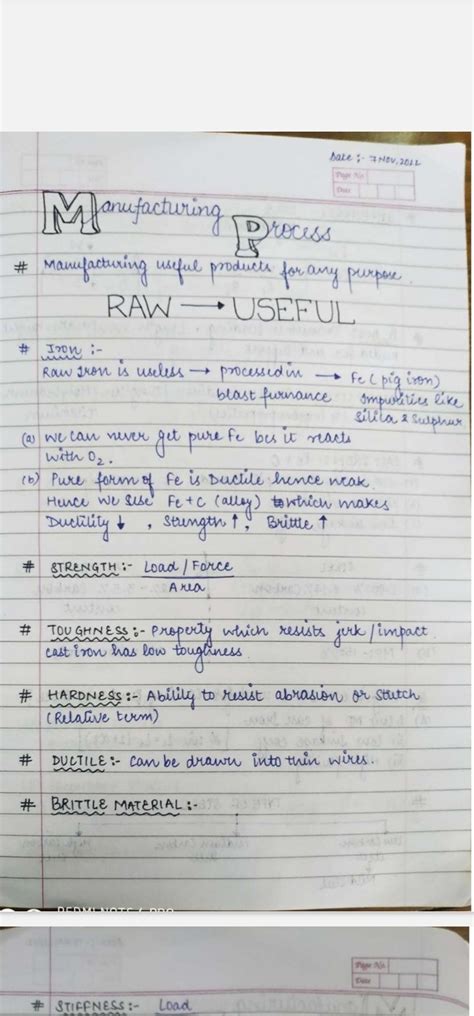 Date :- 7 Nov, 2022
Page No.
Date
Manufacturing Process
# Manufacturing useful products for any purpose.
RAW → USEFUL
# Iron :-
Raw Iron is useless → processed in → Fe (pig iron)
blast furnance Impurities like
Silica & Sulphur
(a) We can never get pure Fe bcs it reacts
with O2.
(b) Pure form of Fe is Ductile hence weak.
Hence we use Fe + C (alloy) which makes
Ductility ↓ , Strength ↑, Brittle ↑
# STRENGTH :- Load / Force
Area
# TOUGHNESS :- Property which resists jerk / impact
cast iron has low toughness
# HARDNESS :- Ability to resist abrasion or
(Relative term)
# DUCTILE :- Can be drawn into thin wires.
# BRITTLE MATERIAL :-
REDMI NOTE 6 PRO
Page No.
Date
# STIFFNESS :- Load